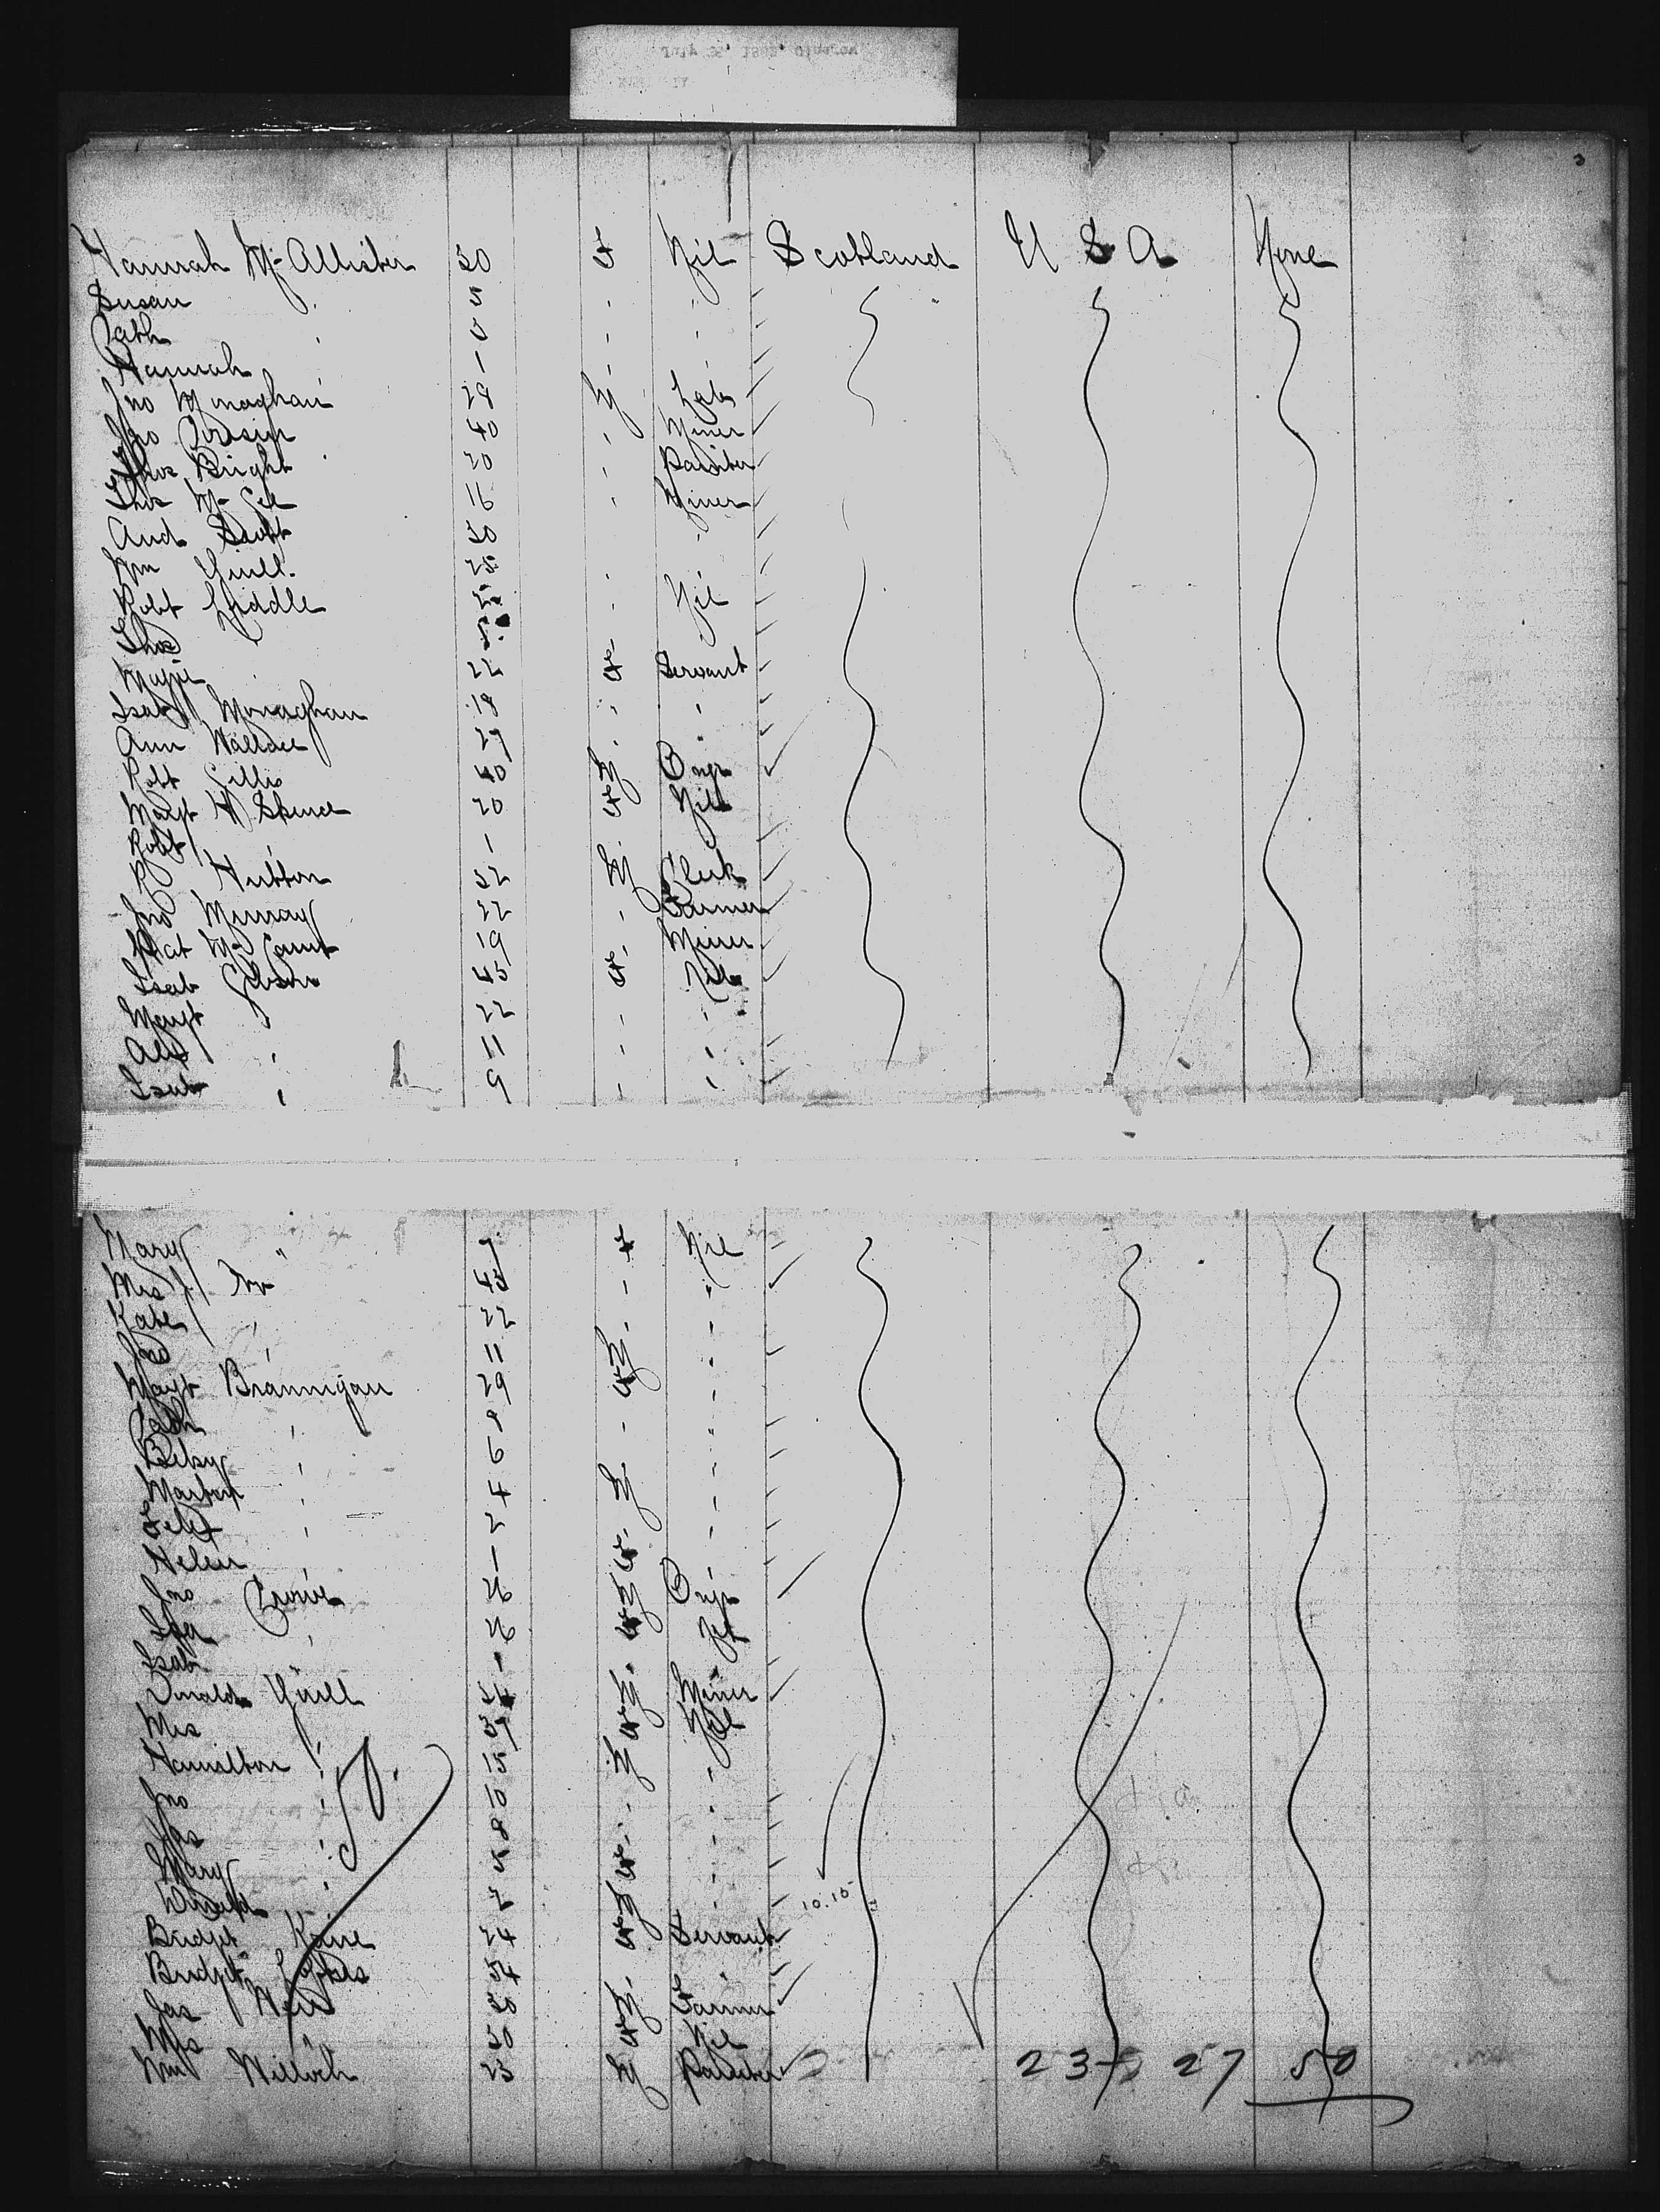 Hannah Mc Allister 30 F Nil Scotland U S A None
Susan " 5 " "
Cath " 3 " "
Hannah " 1 " "
Jno Monaghan 29 M Lab
Jno Cousin 40 " Miner
Thos Bright 20 " Painter
Thos Mc Gee 16 " Miner
And Scott 30 " "
Wm Yuill "
Robt Liddle " Nil
Thos
Maggie " 22 F Servant
Isab Monaghan 18 " "
Ann Wallace 29 " "
Robt Gillis 40 M Engr
Margt H Spence 20 F Nil
Robt " 1
R Hutton 32 M Clerk
Jno Murray 22 " Farmer
Pat Mc Court 19 " Miner
Isab Gibson 45 F Nil
Margt " 22 " "
Alex " 11 " "
Isab " 9 " "
Mary " 7 F Nil
Mrs " "
Kate " 22 " "
Jno " 11 M "
Margt Brannigan 29 F "
Cath " 8 " "
Betsy " 6 "
Martha " 4 "
Felix " 2 M "
Helen " 1 F "
Jno 26 M Engr
26 F Nil
Isab " 1 " "
Donald Yuill 34 M Miner
Mrs " 37 F Nil
Hamilton " 15 M "
Jno " 10 " "
Jas " 8 " "
Mary " 5 F "
Donald " 2 M "
10.15
Bridget Kane 24 F Servant
Bridget 54 "
Jas Weir 30 M Farmer
Mrs " 30 F Nil
Wm Willock 23 M Painter
23 27 50